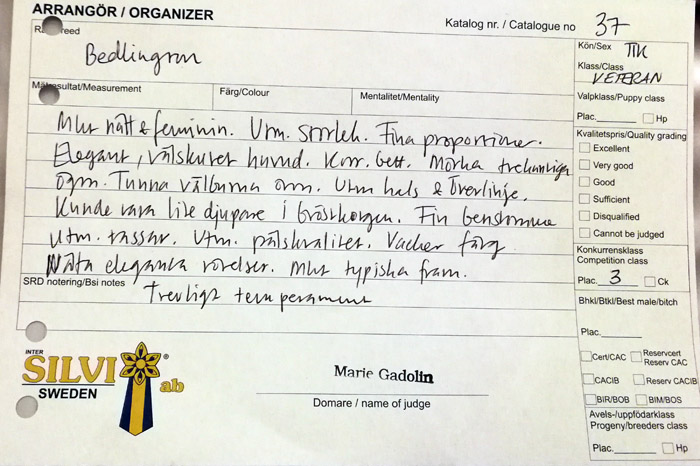 ARRANGÖR / ORGANIZER
Katalog nr. / Catalogue no 37
Ra reed
Bedlington
Kön/Sex TIK
Klass/Class
VETERAN
Mätresultat/Measurement
Färg/Colour
Mentalitet/Mentality
Valpklass/Puppy class
Plac. Hp
Kvalitetspris/Quality grading
Excellent
Very good
Good
Sufficient
Disqualified
Cannot be judged
Mkt nätt & feminin. Utm. storlek. Fina proportioner.
Elegant, välskuret huvud. Korr. bett. Mörka trekantiga
ögon. Tunna välburna öron. Utm hals & överlinje.
Kunde vara lite djupare i bröstkorgen. Fin benstomme
Utm. tassar. Utm. pälskvalitet. Vacker färg
Nätta eleganta rörelser. Mkt typiska fram.
Trevligt temperament
SRD notering/Bsi notes
Konkurrensklass
Competition class
Plac. 3 Ck
Bhkl/Btkl/Best male/bitch
Plac.
Cert/CAC
Reservcert
Reserv CAC
CACIB
Reserv CACIB
BIR/BOB
BIM/BOS
Avels-/uppfödarklass
Progeny/breeders class
Plac. Hp
INTER
SILVI ® ab
SWEDEN
Marie Gadolin
Domare / name of judge